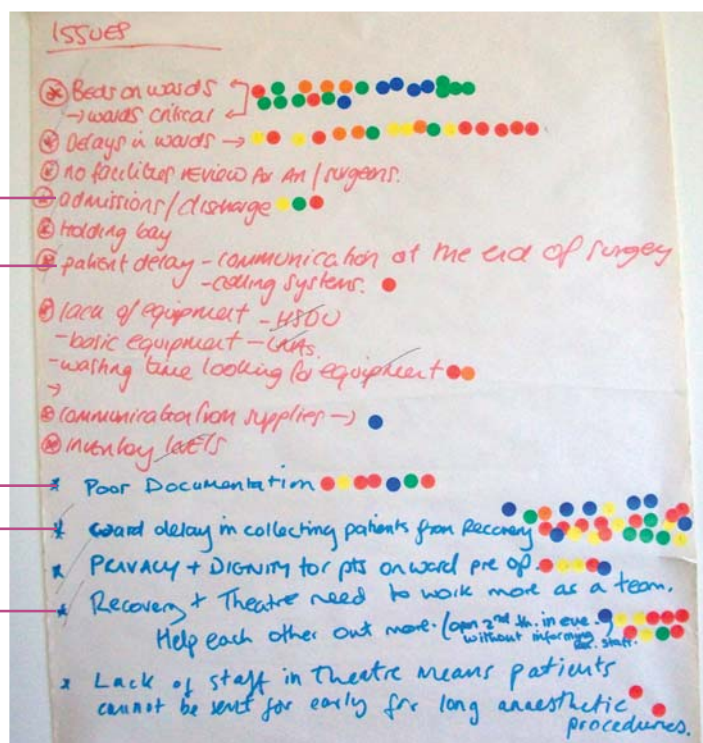 ISSUES
Beds on wards
→ wards critical
Delays in wards →
no facilities review for An / surgeons.
admissions/discharge
Holding bay
patient delay - communication at the end of surgery
- calling systems.
lack of equipment - HSDU
- basic equipment -
- wasting time looking for equipment
→
communication from supplies →
inventory levels
* Poor Documentation
* ward delay in collecting patients from Recovery
* PRIVACY + DIGNITY for pts on ward pre op.
* Recovery + Theatre need to work more as a team.
Help each other out more. (open 2nd th. in eve.
without informing
rec. staff.)
* Lack of staff in theatre means patients
cannot be sent for early for long anaesthetic
procedures.